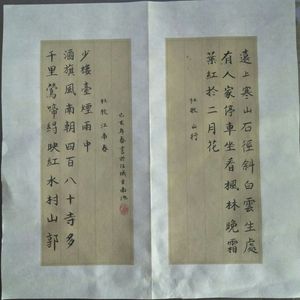 遠上寒山石徑斜白雲生處
有人家停車坐看楓林晚霜
葉紅於二月花
杜牧 山行
千里鶯啼綠映紅水村山郭
酒旗風南朝四百八十寺多
少樓臺煙雨中
杜牧 江南春
己亥年春書於江城